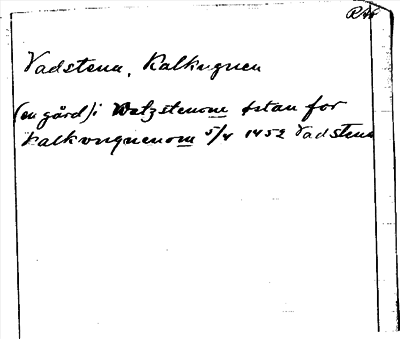 RAp
Vadstena, Kalkugnen
(en gård) i Watzstenom östan for
kalkvngnenom 5/4 1452 Vadstena